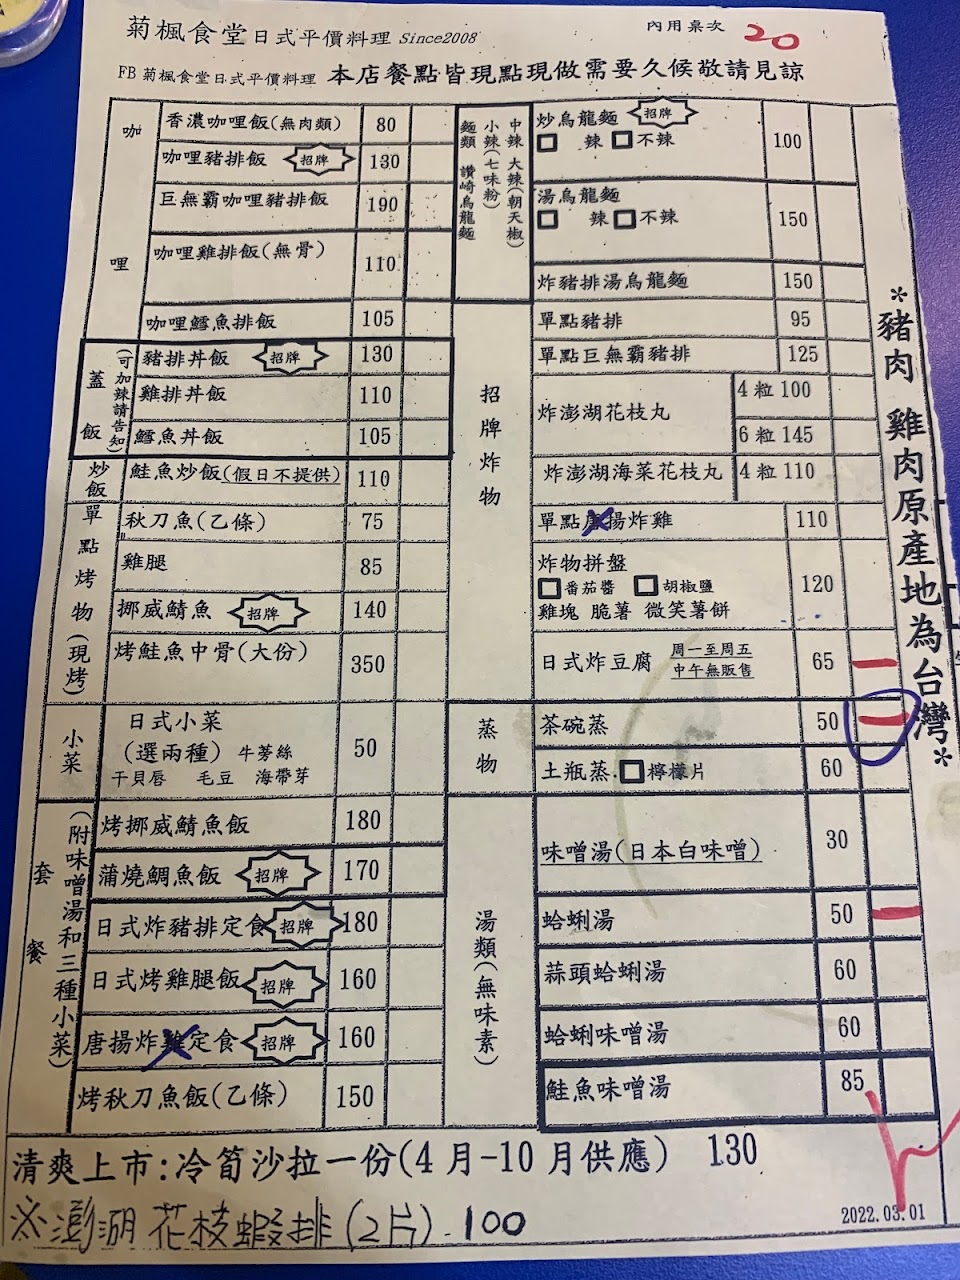 菊楓食堂日式平價料理 Since2008
內用桌次 20
FB 菊楓食堂日式平價料理 本店餐點皆現點現做需要久候敬請見諒
咖哩
香濃咖哩飯(無肉類) 80
咖哩豬排飯 招牌 130
巨無霸咖哩豬排飯 190
咖哩雞排飯(無骨) 110
咖哩鱈魚排飯 105
蓋飯
(可加辣請告知)
豬排丼飯 招牌 130
雞排丼飯 110
鱈魚丼飯 105
炒飯
鮭魚炒飯(假日不提供) 110
單點烤物(現烤)
秋刀魚(乙條) 75
雞腿 85
挪威鯖魚 招牌 140
烤鮭魚中骨(大份) 350
小菜
日式小菜
(選兩種) 牛蒡絲
干貝唇 毛豆 海帶芽
50
套餐
(附味噌湯和三種小菜)
烤挪威鯖魚飯 180
蒲燒鯛魚飯 招牌 170
日式炸豬排定食 招牌 180
日式烤雞腿飯 招牌 160
唐揚炸雞定食 招牌 160
烤秋刀魚飯(乙條) 150
麵類 讚崎烏龍麵
小辣(七味粉)
中辣 大辣(朝天椒)
炒烏龍麵 招牌
□ 辣 □不辣
100
湯烏龍麵
□ 辣 □不辣
150
炸豬排湯烏龍麵 150
招牌炸物
單點豬排 95
單點巨無霸豬排 125
炸澎湖花枝丸 4粒 100
6粒 145
炸澎湖海菜花枝丸 4粒 110
單點唐揚炸雞 110
炸物拼盤
□番茄醬 □胡椒鹽
雞塊 脆薯 微笑薯餅
120
日式炸豆腐 周一至周五
中午無販售
65 一
蒸物
茶碗蒸 50 一
土瓶蒸.□檸檬片 60
湯類(無味素)
味噌湯(日本白味噌) 30
蛤蜊湯 50 一
蒜頭蛤蜊湯 60
蛤蜊味噌湯 60
鮭魚味噌湯 85
*豬肉 雞肉原產地為台灣*
清爽上市:冷筍沙拉一份(4月-10月供應) 130
※澎湖花枝蝦排(2片). 100
2022.03.01